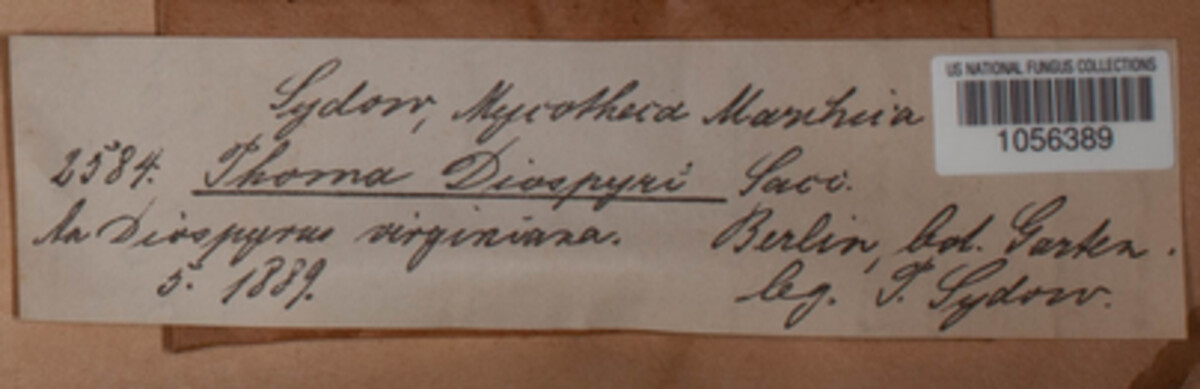 Sydow, Mycotheca Marchica
2584. Phoma Diospyri Sacc.
An Diospyrus virginiana. Berlin, bot. Garten.
5. 1889. leg. P. Sydow.
US NATIONAL FUNGUS COLLECTIONS
1056389